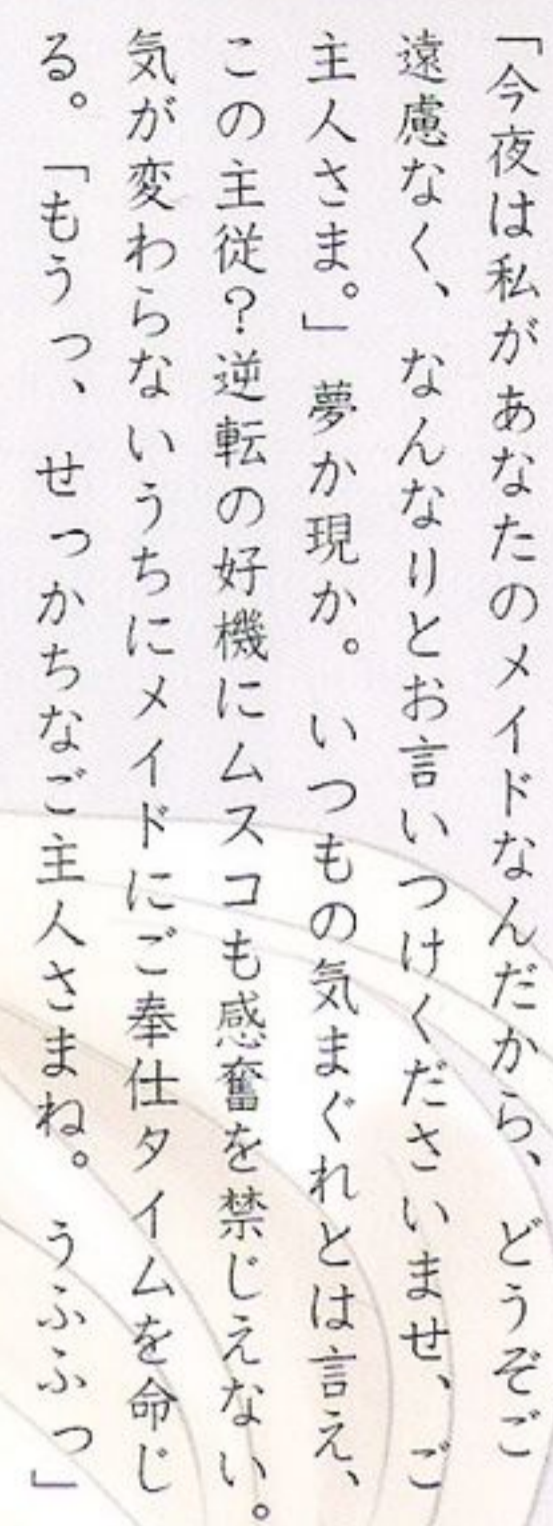 「今夜は私があなたのメイドなんだから、どうぞご
遠慮なく、なんなりとお言いつけくださいませ、ご
主人さま。」夢か現か。いつもの気まぐれとは言え、
この主従？逆転の好機にムスコも感奮を禁じえない。
気が変わらないうちにメイドにご奉仕タイムを命じ
る。「もうっ、せっかちなご主人さまね。うふふっ」